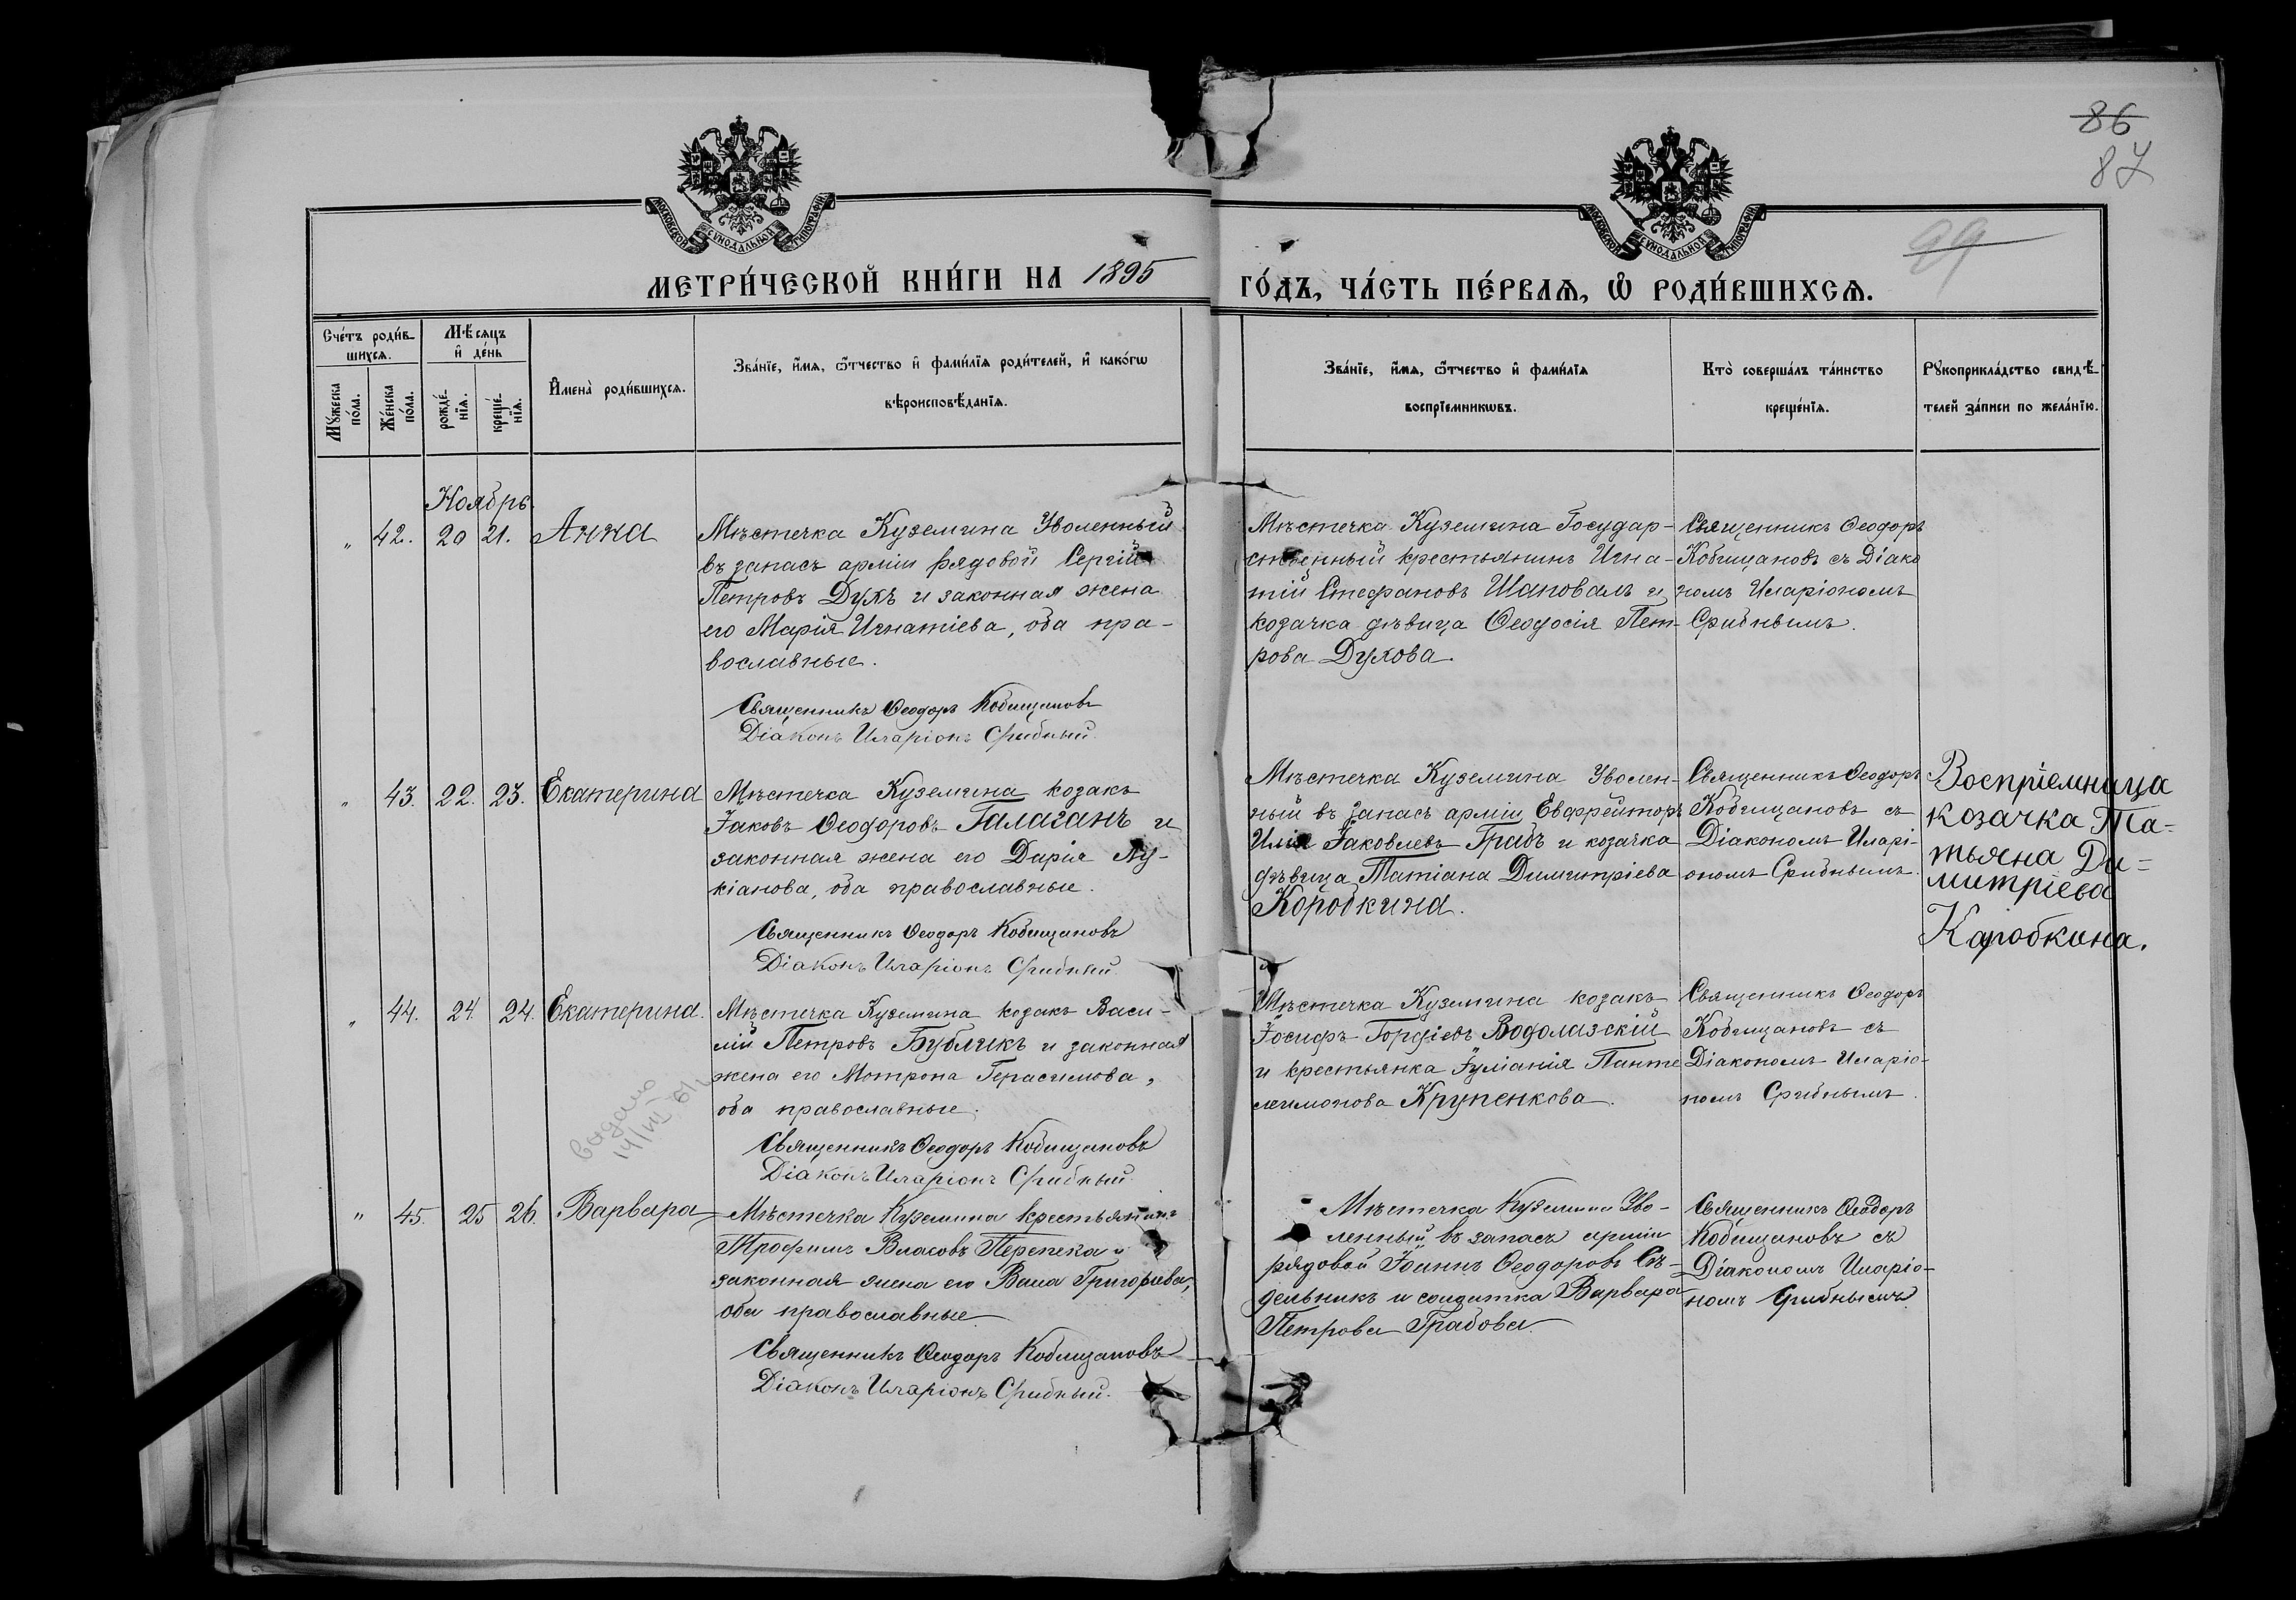 86
87
99
МОСКОВСКОЙ СѴНОДАЛЬНОЙ ТИПОГРАФІИ
МОСКОВСКОЙ СѴНОДАЛЬНОЙ ТИПОГРАФІИ
МЕТРИ́ЧЕСКОЙ КНИ́ГИ НА 1895
ГО́ДЪ, ЧА́СТЬ ПЕ́РВАѦ, Ѡ҆ РОДИ́ВШИХСѦ.
Сче́тъ роди́в-
шихсѧ.
Мꙋ́жеска
по́ла.
Же́нска
по́ла.
Мѣ́сѧцъ
и҆ де́нь
рожде́-
нїѧ.
креще́-
нїѧ.
И҆мена̀ роди́вшихсѧ.
Зва́нїе, и҆́мѧ, ѻ҆́тчество и҆ фами́лїѧ роди́телей, и҆ како́гѡ
вѣроисповѣ́данїѧ.
Зва́нїе, и҆́мѧ, ѻ҆́тчество и҆ фами́лїѧ
воспрїемникѡвъ.
Кто̀ соверша́лъ та́инство
креще́нїѧ.
Рꙋкоприкла́дство свидѣ́-
телей за́писи по жела́нїю.
Ноябрь.
" 42. 20 21. Анна
Мѣстечка Куземина Уволенный
въ запасъ арміи рядовой Сергій
Петровъ Духъ и законная жена
его Марія Игнатіева, оба пра-
вославные.
Священникъ Ѳеодоръ Кобищановъ
Діаконъ Иларіонъ Срибный.
Мѣстечка Куземина Государ-
ственный крестьянинъ Игна-
тій Стефановъ Шаповалъ и
козачка дѣвица Ѳеодосія Пет-
рова Духова.
Священникъ Ѳеодоръ
Кобищановъ съ Діако
номъ Иларіономъ
Срибнымъ.
" 43. 22. 23. Екатерина
Мѣстечка Куземина козакъ
Іаковъ Ѳеодоровъ Галаганъ и
законная жена его Дарія Лу-
кіанова, оба православные.
Священникъ Ѳеодоръ Кобищановъ
Діаконъ Иларіонъ Срибный.
Мѣстечка Куземина Уволен-
ный въ запасъ арміи Евфрейторъ
Илія Іаковлевъ Грабъ и козачка
дѣвица Татіана Димитріева
Коробкина.
Священникъ Ѳеодоръ
Кобищановъ съ
Діакономъ Иларі-
ономъ Срибнымъ.
Воспріемница
козачка Та=
тьяна Ди=
митріева
Каробкина.
" 44. 24. 24. Екатерина.
Мѣстечка Куземина козакъ Васи-
лій Петровъ Бубликъ и законная
жена его Мотрона Герасимова,
оба православные.
Священникъ Ѳеодоръ Кобищановъ
Діаконъ Иларіонъ Срибный
Мѣстечка Куземина козакъ
Іосифъ Гордіевъ Водолазскій
и крестьянка Іуліанія Панте
леимонова Крупенкова.
Священникъ Ѳеодоръ
Кобищановъ съ
Діакономъ Иларіо-
номъ Срибнымъ.
Выдано
" 45. 25 26. Варвара
Мѣстечка Куземина крестьянинъ
Трофимъ Власовъ Перепека и
законная жена его Васса Григорьева,
оба православные
Священникъ Ѳеодоръ Кобищановъ
Діаконъ Иларіонъ Срибный.
Мѣстечка Куземина Уво-
ленный въ запасъ арміи
рядовой Іоаннъ Ѳеодоровъ Сѣ-
дельникъ и солдатка Варвара
Петрова Грабова.
Священникъ Ѳеодоръ
Кобищановъ съ
Діакономъ Иларіо-
номъ Срибнымъ.